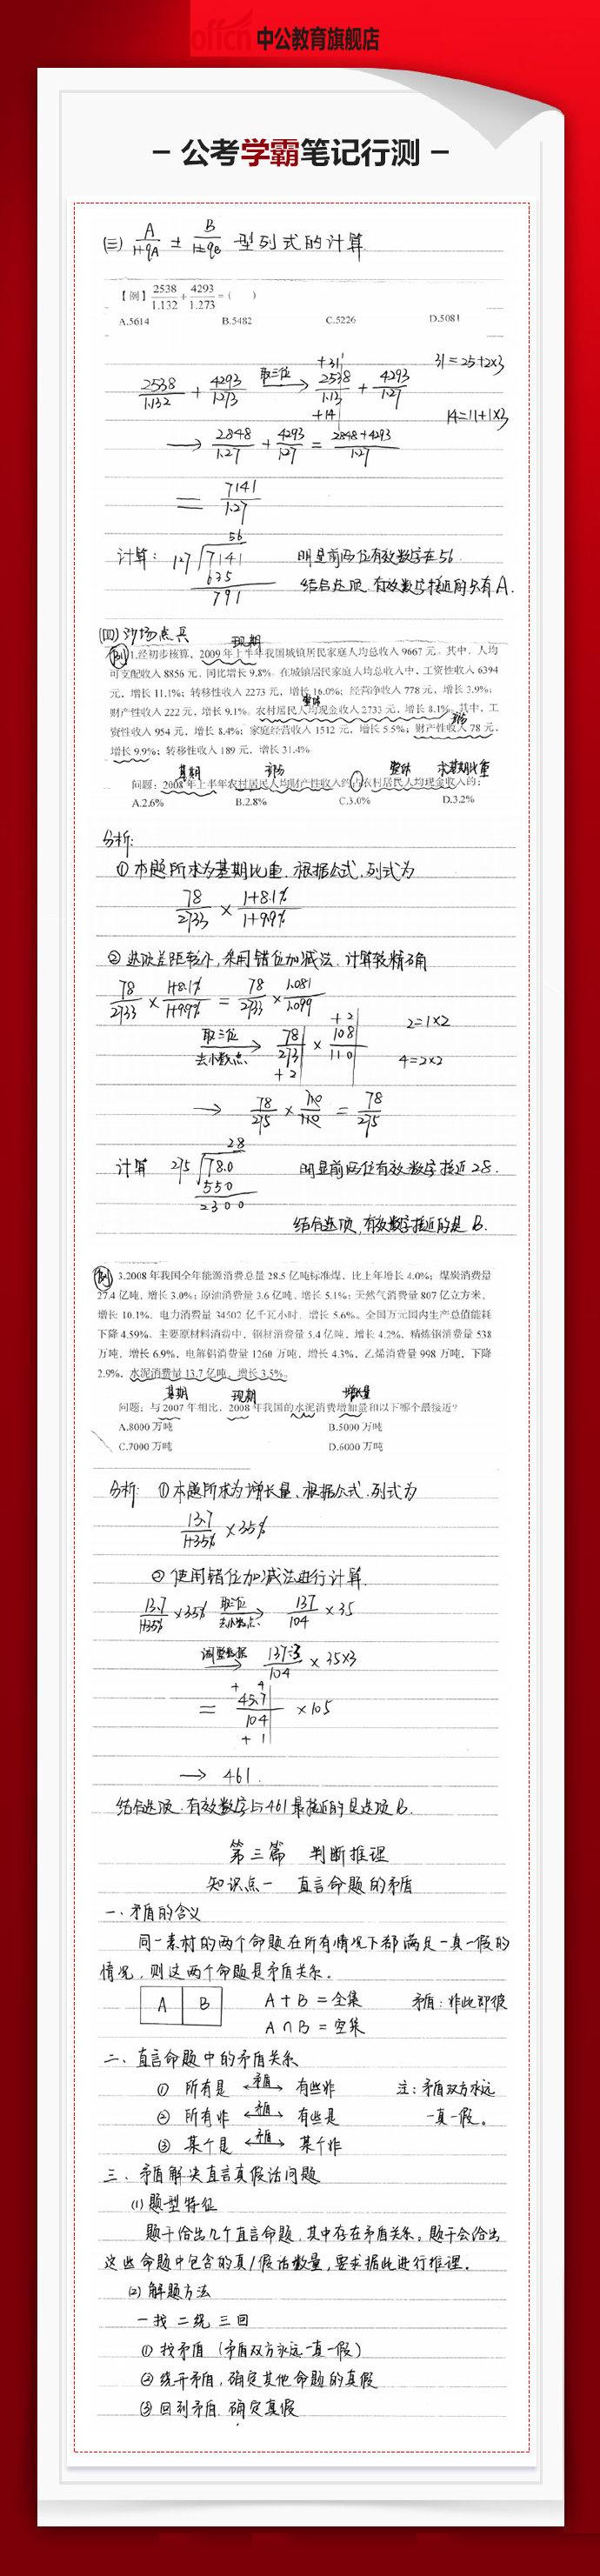 offcn 中公教育旗舰店
- 公考学霸笔记行测 -
(三) A/1±qA ± B/1±qB 型列式的计算
【例】2538/1.132 + 4293/1.273 =( )
A.5614 B.5482 C.5226 D.5081
+31 31=25+2×3
2538/1.132 + 4293/1.273 取三位→ 2538/1.13 + 4293/1.27
+14 14=11+1×3
→ 2848/1.27 + 4293/1.27 = 2848+4293/1.27
= 7141/1.27
56
计算: 127 7141 明显前两位有效数字在56.
635 结合选项,有效数字接近的只有A.
791
(四)沙场点兵
现期
例1.经初步核算,2009年上半年我国城镇居民家庭人均总收入9667元。其中,人均
可支配收入8856元,同比增长9.8%。在城镇居民家庭人均总收入中,工资性收入6394
元,增长11.1%;转移性收入2273元,增长16.0%;经营净收入778元,增长3.9%;
整体
财产性收入222元,增长9.1%。农村居民人均现金收入2733元,增长8.1%。其中,工
部分
资性收入954元,增长8.4%;家庭经营收入1512元,增长5.5%;财产性收入78元,
增长9.9%;转移性收入189元,增长31.4%
基期 部分 整体 求基期比重
问题:2008年上半年农村居民人均财产性收入约占农村居民人均现金收入的:
A.2.6% B.2.8% C.3.0% D.3.2%
分析:
①本题所求为基期比重,根据公式,列式为
78/2733 × 1+8.1%/1+9.9%
②选项差距较小,采用错位加减法,计算较精确
78/2733 × 1+8.1%/1+9.9% = 78/2733 × 1.081/1.099
+2 2=1×2
取三位 去小数点→ 78/273 × 108/110 4=2×2
+2
→ 78/275 × 110/110 = 78/275
28
计算 275 78.0 明显前两位有效数字接近28.
550
2300
结合选项,有效数字接近的是B.
例3.2008年我国全年能源消费总量28.5亿吨标准煤,比上年增长4.0%;煤炭消费量
27.4亿吨,增长3.0%;原油消费量3.6亿吨,增长5.1%;天然气消费量807亿立方米,
增长10.1%,电力消费量34502亿千瓦小时,增长5.6%。全国万元国内生产总值能耗
下降4.59%。主要原材料消费中,钢材消费量5.4亿吨,增长4.2%,精炼铜消费量538
万吨,增长6.9%,电解铝消费量1260万吨,增长4.3%,乙烯消费量998万吨,下降
2.9%,水泥消费量13.7亿吨,增长3.5%。
基期 现期 增长量
问题:与2007年相比,2008年我国的水泥消费增加量和以下哪个最接近?
A.8000万吨 B.5000万吨
C.7000万吨 D.6000万吨
分析 ①本题所求为增长量,根据公式,列式为
13.7/1+3.5% ×3.5%
②使用错位加减法进行计算.
13.7/1+3.5% ×3.5% 取三位 去小数点→ 137/104 ×35
调整数据→ 137÷3/104 × 35×3
+ 4
= 45.7/104 ×105
+ 1
→ 461.
结合选项,有效数字与461最接近的是选项B.
第三篇 判断推理
知识点一 直言命题的矛盾
一、矛盾的含义
同一素材的两个命题在所有情况下都满足一真一假的
情况,则这两个命题是矛盾关系。
A B A+B=全集 矛盾:非此即彼
A∩B=空集
二、直言命题中的矛盾关系
① 所有是 ←矛盾→ 有些非 注:矛盾双方永远
② 所有非 ←矛盾→ 有些是 一真一假。
③ 某个是 ←矛盾→ 某个非
三、矛盾解决直言真假话问题
(1)题型特征
题干给出几个直言命题,其中存在矛盾关系,题干会给出
这些命题中包含的真/假话数量,要求据此进行推理。
(2)解题方法
一找 二绕 三回
①找矛盾(矛盾双方永远一真一假)
②绕开矛盾,确定其他命题的真假
③回到矛盾,确定真假